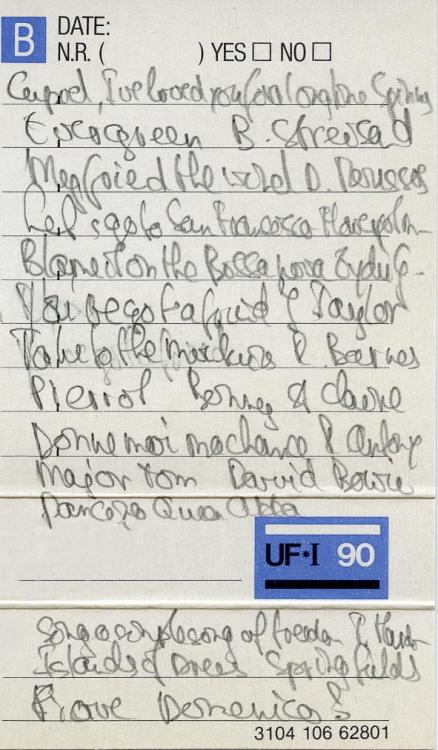 B DATE:
N.R. ( ) YES □ NO □
Cupid, I've loved you for a long time Spinners
Evergreen B. Streisad
My friend the wind D. Roussos
Let's go to San Francisco Flowerpotm
Blame it on the Bossa nova Eydie G.
You've got a friend J Taylor
Take to the mardi R. Barnes
Pierrot Benny & Claire
Donne moi ma chance R Antony
Major Tom David Bowie
Dancing Queen Abba
UF•I 90
Song a simple song of freedom T Hardin
Islands of Dreams Springfields
Piove Domenico
3104 106 62801